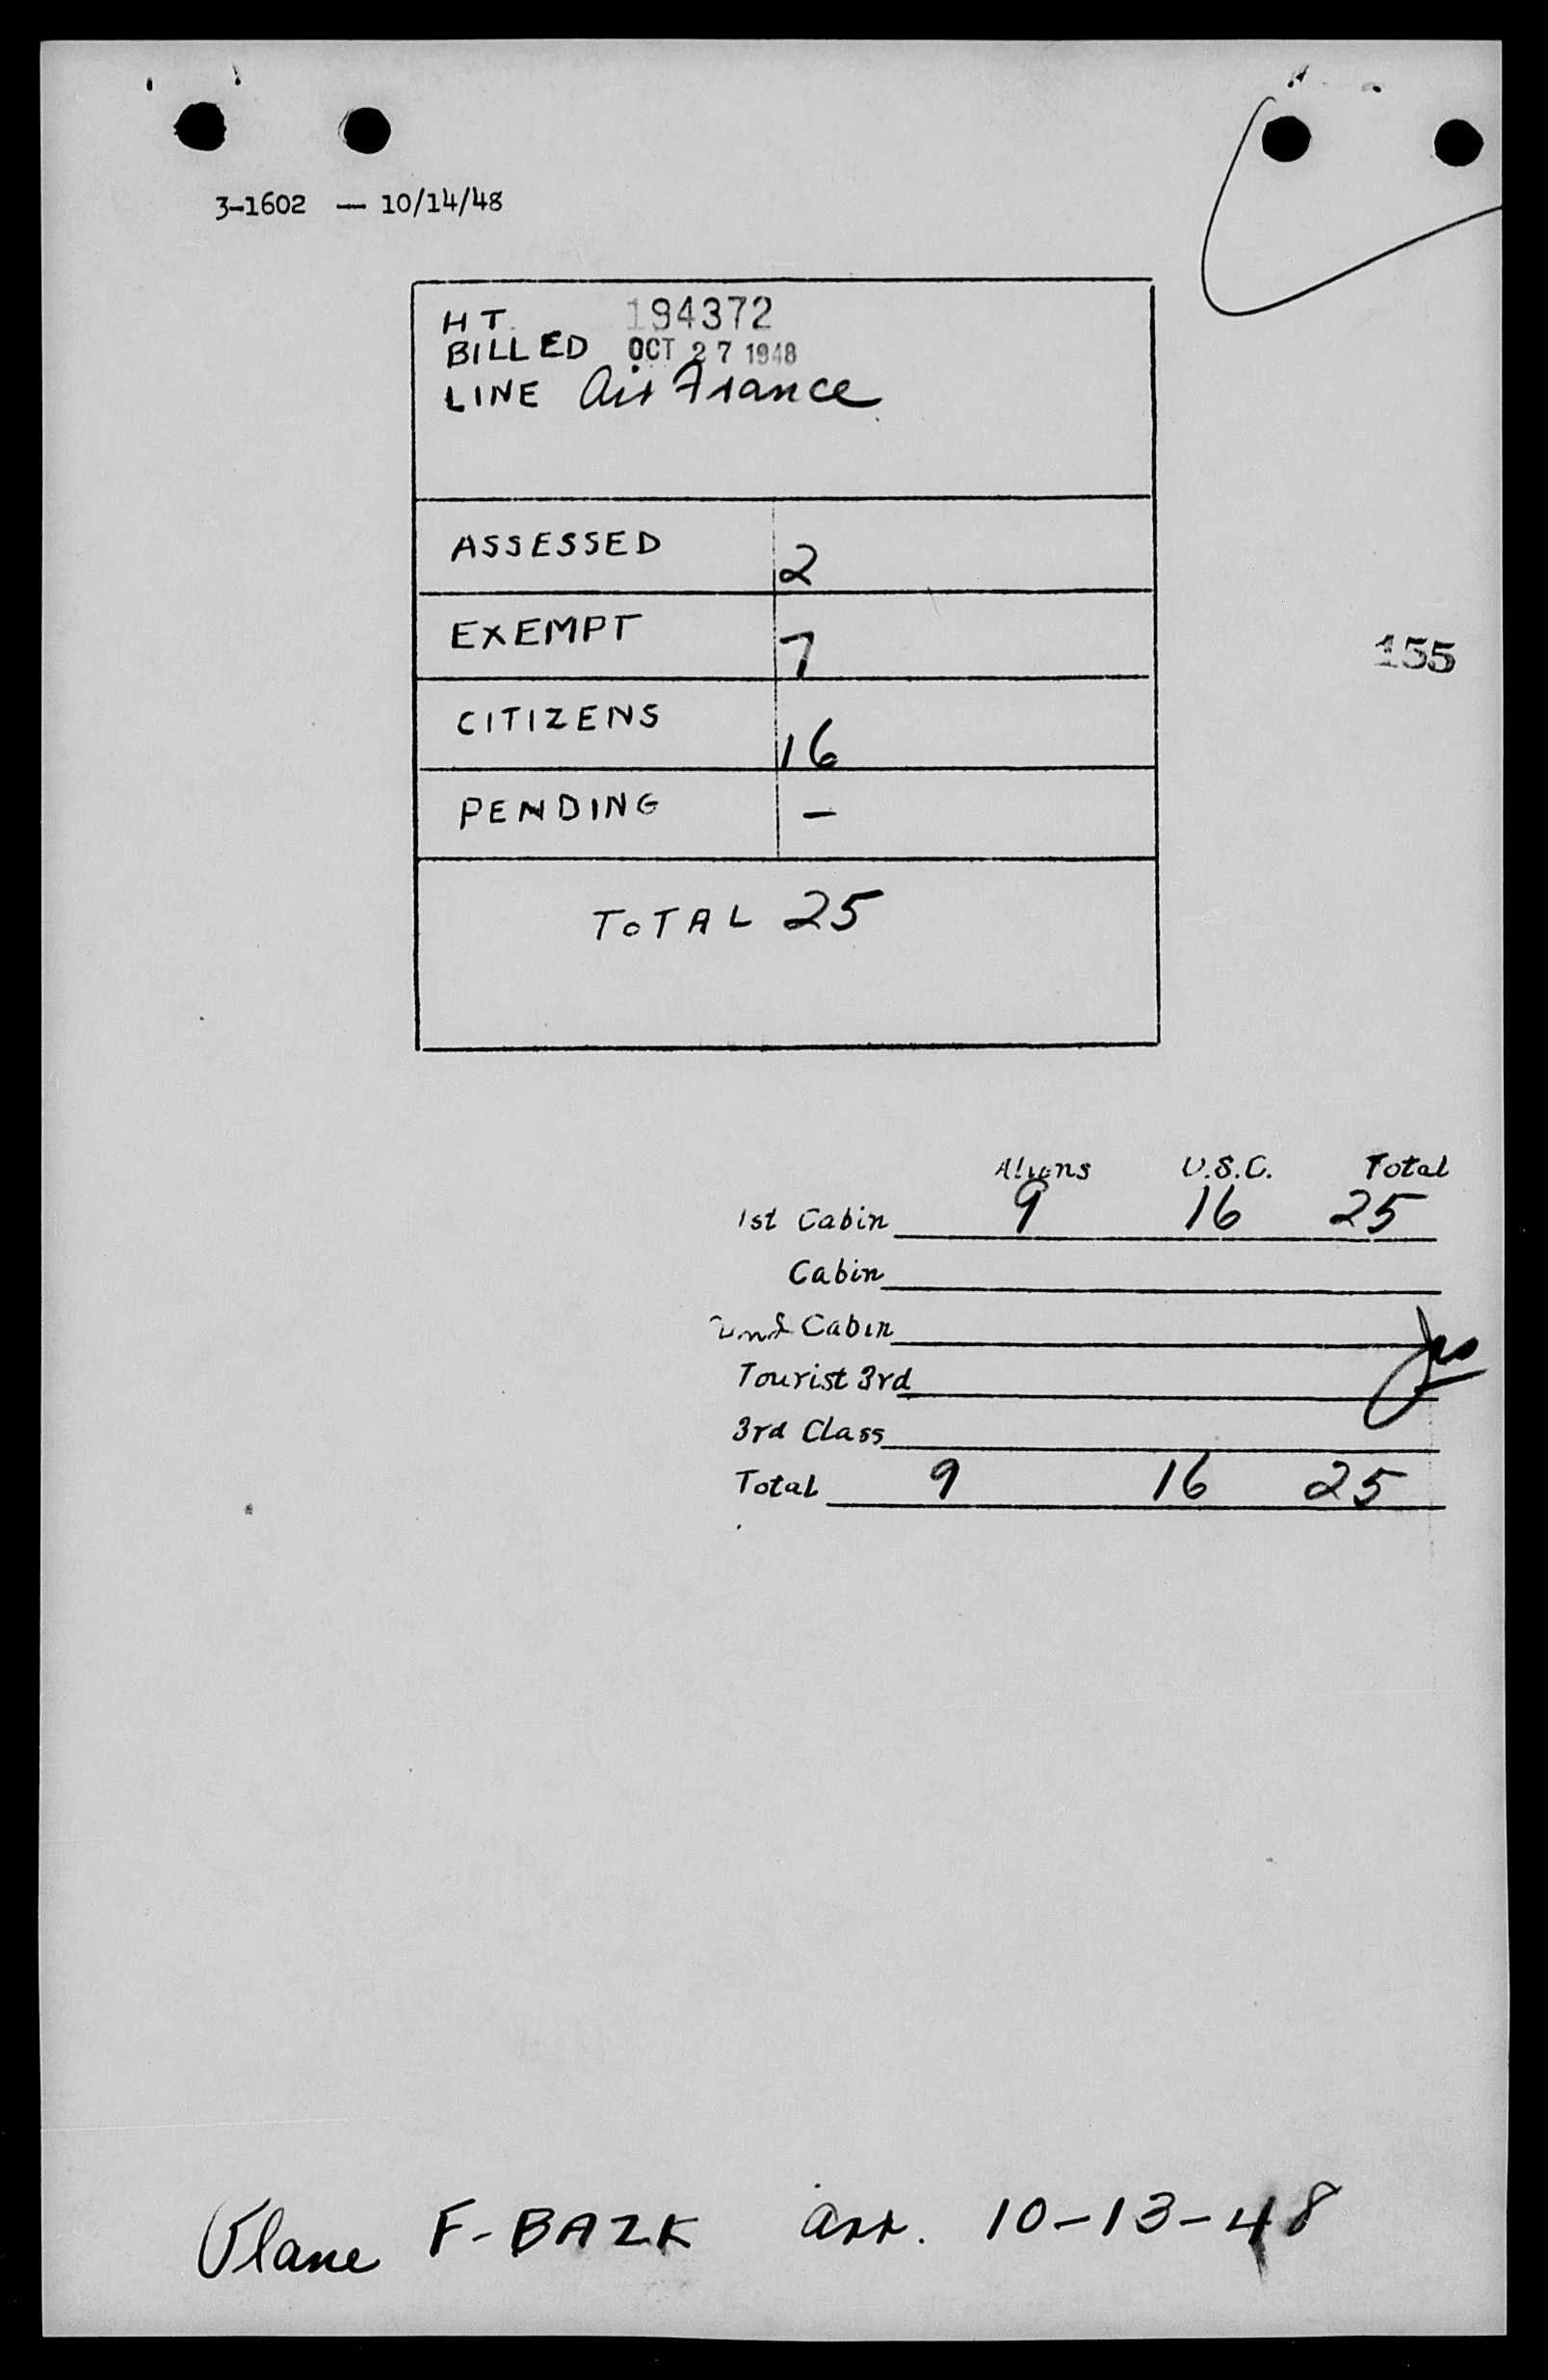 3-1602 — 10/14/48
HT. 194372
BILLED OCT 27 1948
LINE Air France
ASSESSED 2
EXEMPT 7
155
CITIZENS 16
PENDING —
TOTAL 25
Aliens U.S.C. Total
1st Cabin 9 16 25
Cabin
2nd Cabin
Tourist 3rd
3rd Class
Total 9 16 25
Plane F-BAZK arr. 10-13-48